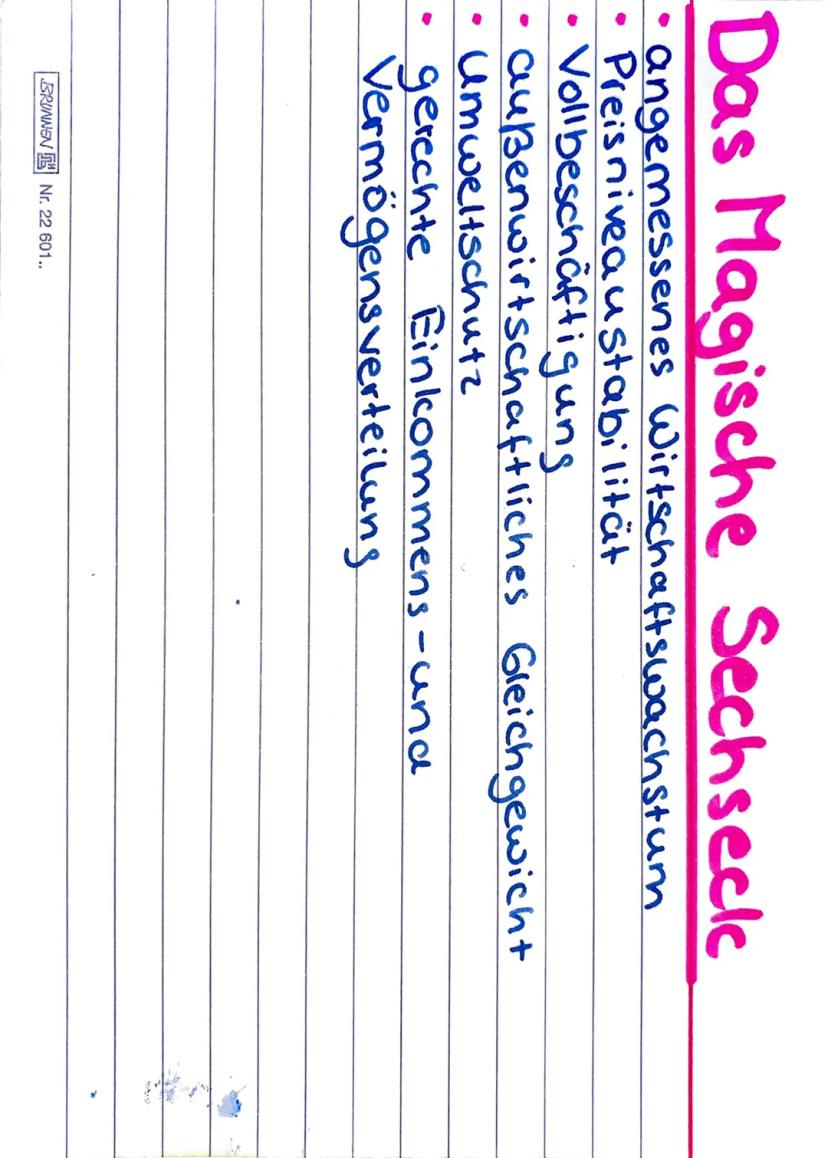 Das Magische Sechseck
• angemessenes Wirtschaftswachstum
• Preisniveaustabilität
• Vollbeschäftigung
• außenwirtschaftliches Gleichgewicht
• Umweltschutz
• gerechte Einkommens-und
Vermögensverteilung
BRUNNEN Nr. 22 601..